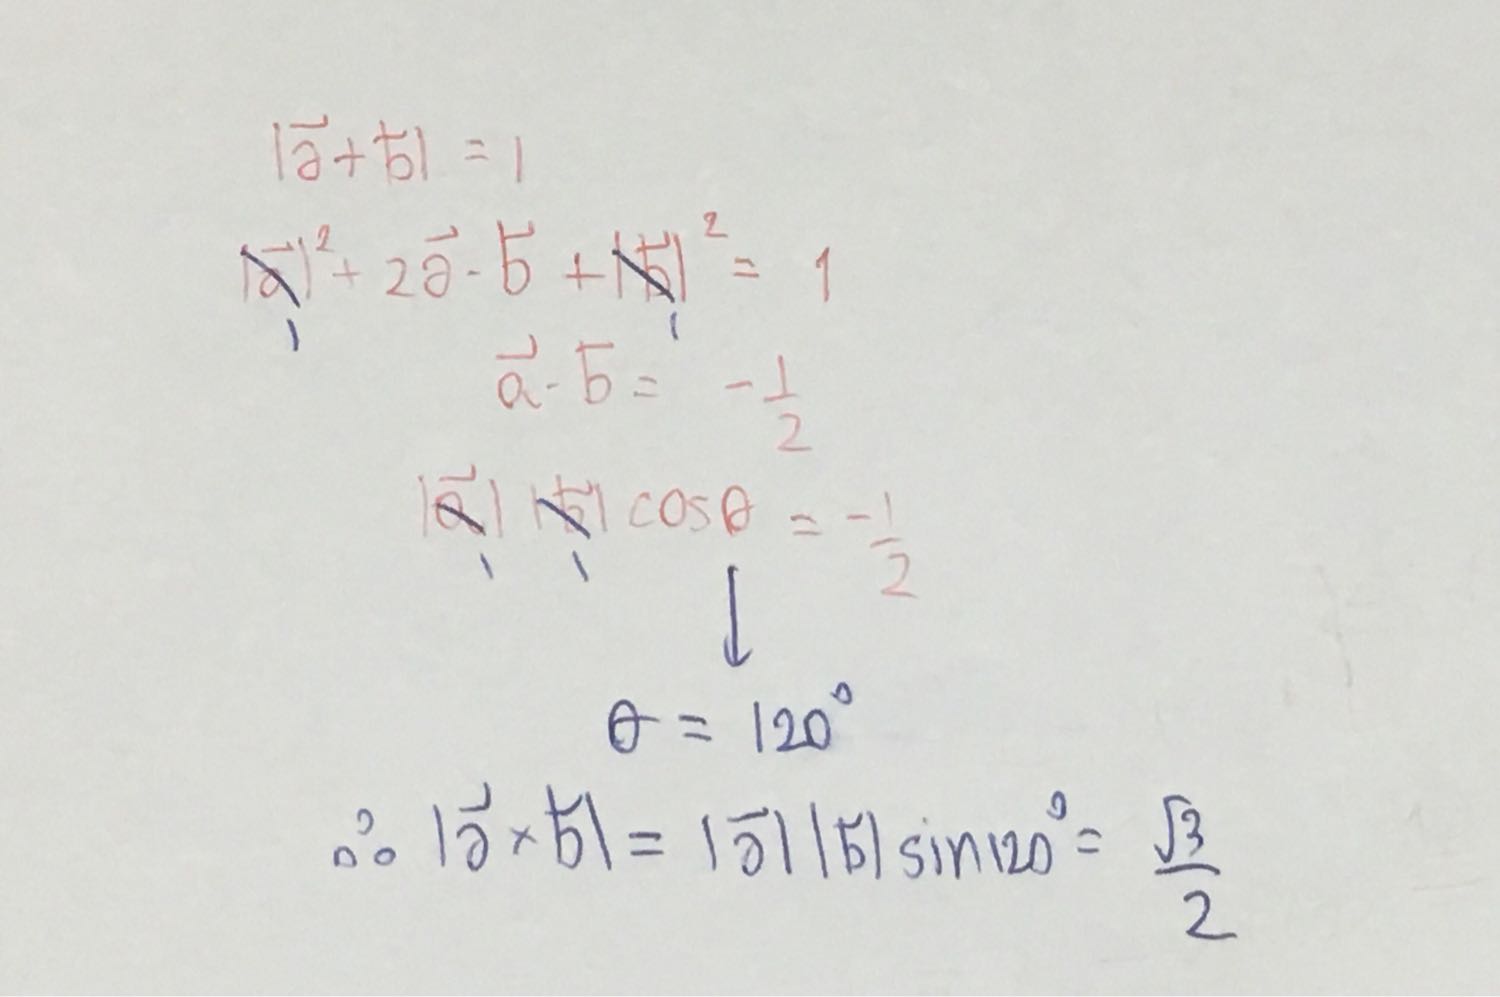 |a⃗ + b⃗| = 1
|a⃗|² + 2a⃗ · b⃗ + |b⃗|² = 1
1 1
a⃗ · b⃗ = -1/2
|a⃗| |b⃗| cosθ = -1/2
1 1
↓
θ = 120°
∴ |a⃗ × b⃗| = |a⃗| |b⃗| sin120° = √3/2